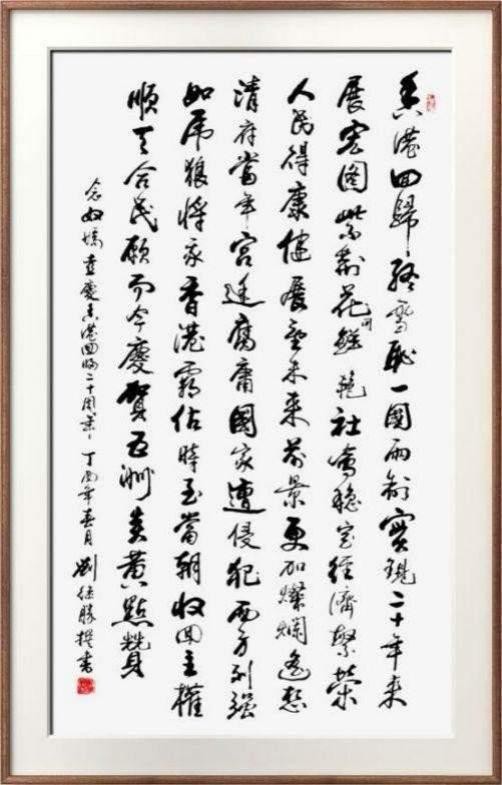 香港回歸終雪恥一國兩制實現二十年来
展宏圖紫荆花開鮮艳社會穩定经濟繁荣
人民得康健展望未来前景更加燦爛遥想
清府當年宫廷腐庸國家遭侵犯西方列强
如虎狼將我香港霸佔時至當朝收回主權
順天合民願而今慶賀五洲炎黄點讚
念奴嬌 喜慶香港回歸二十周年 丁酉年春月 劉德勝撰書